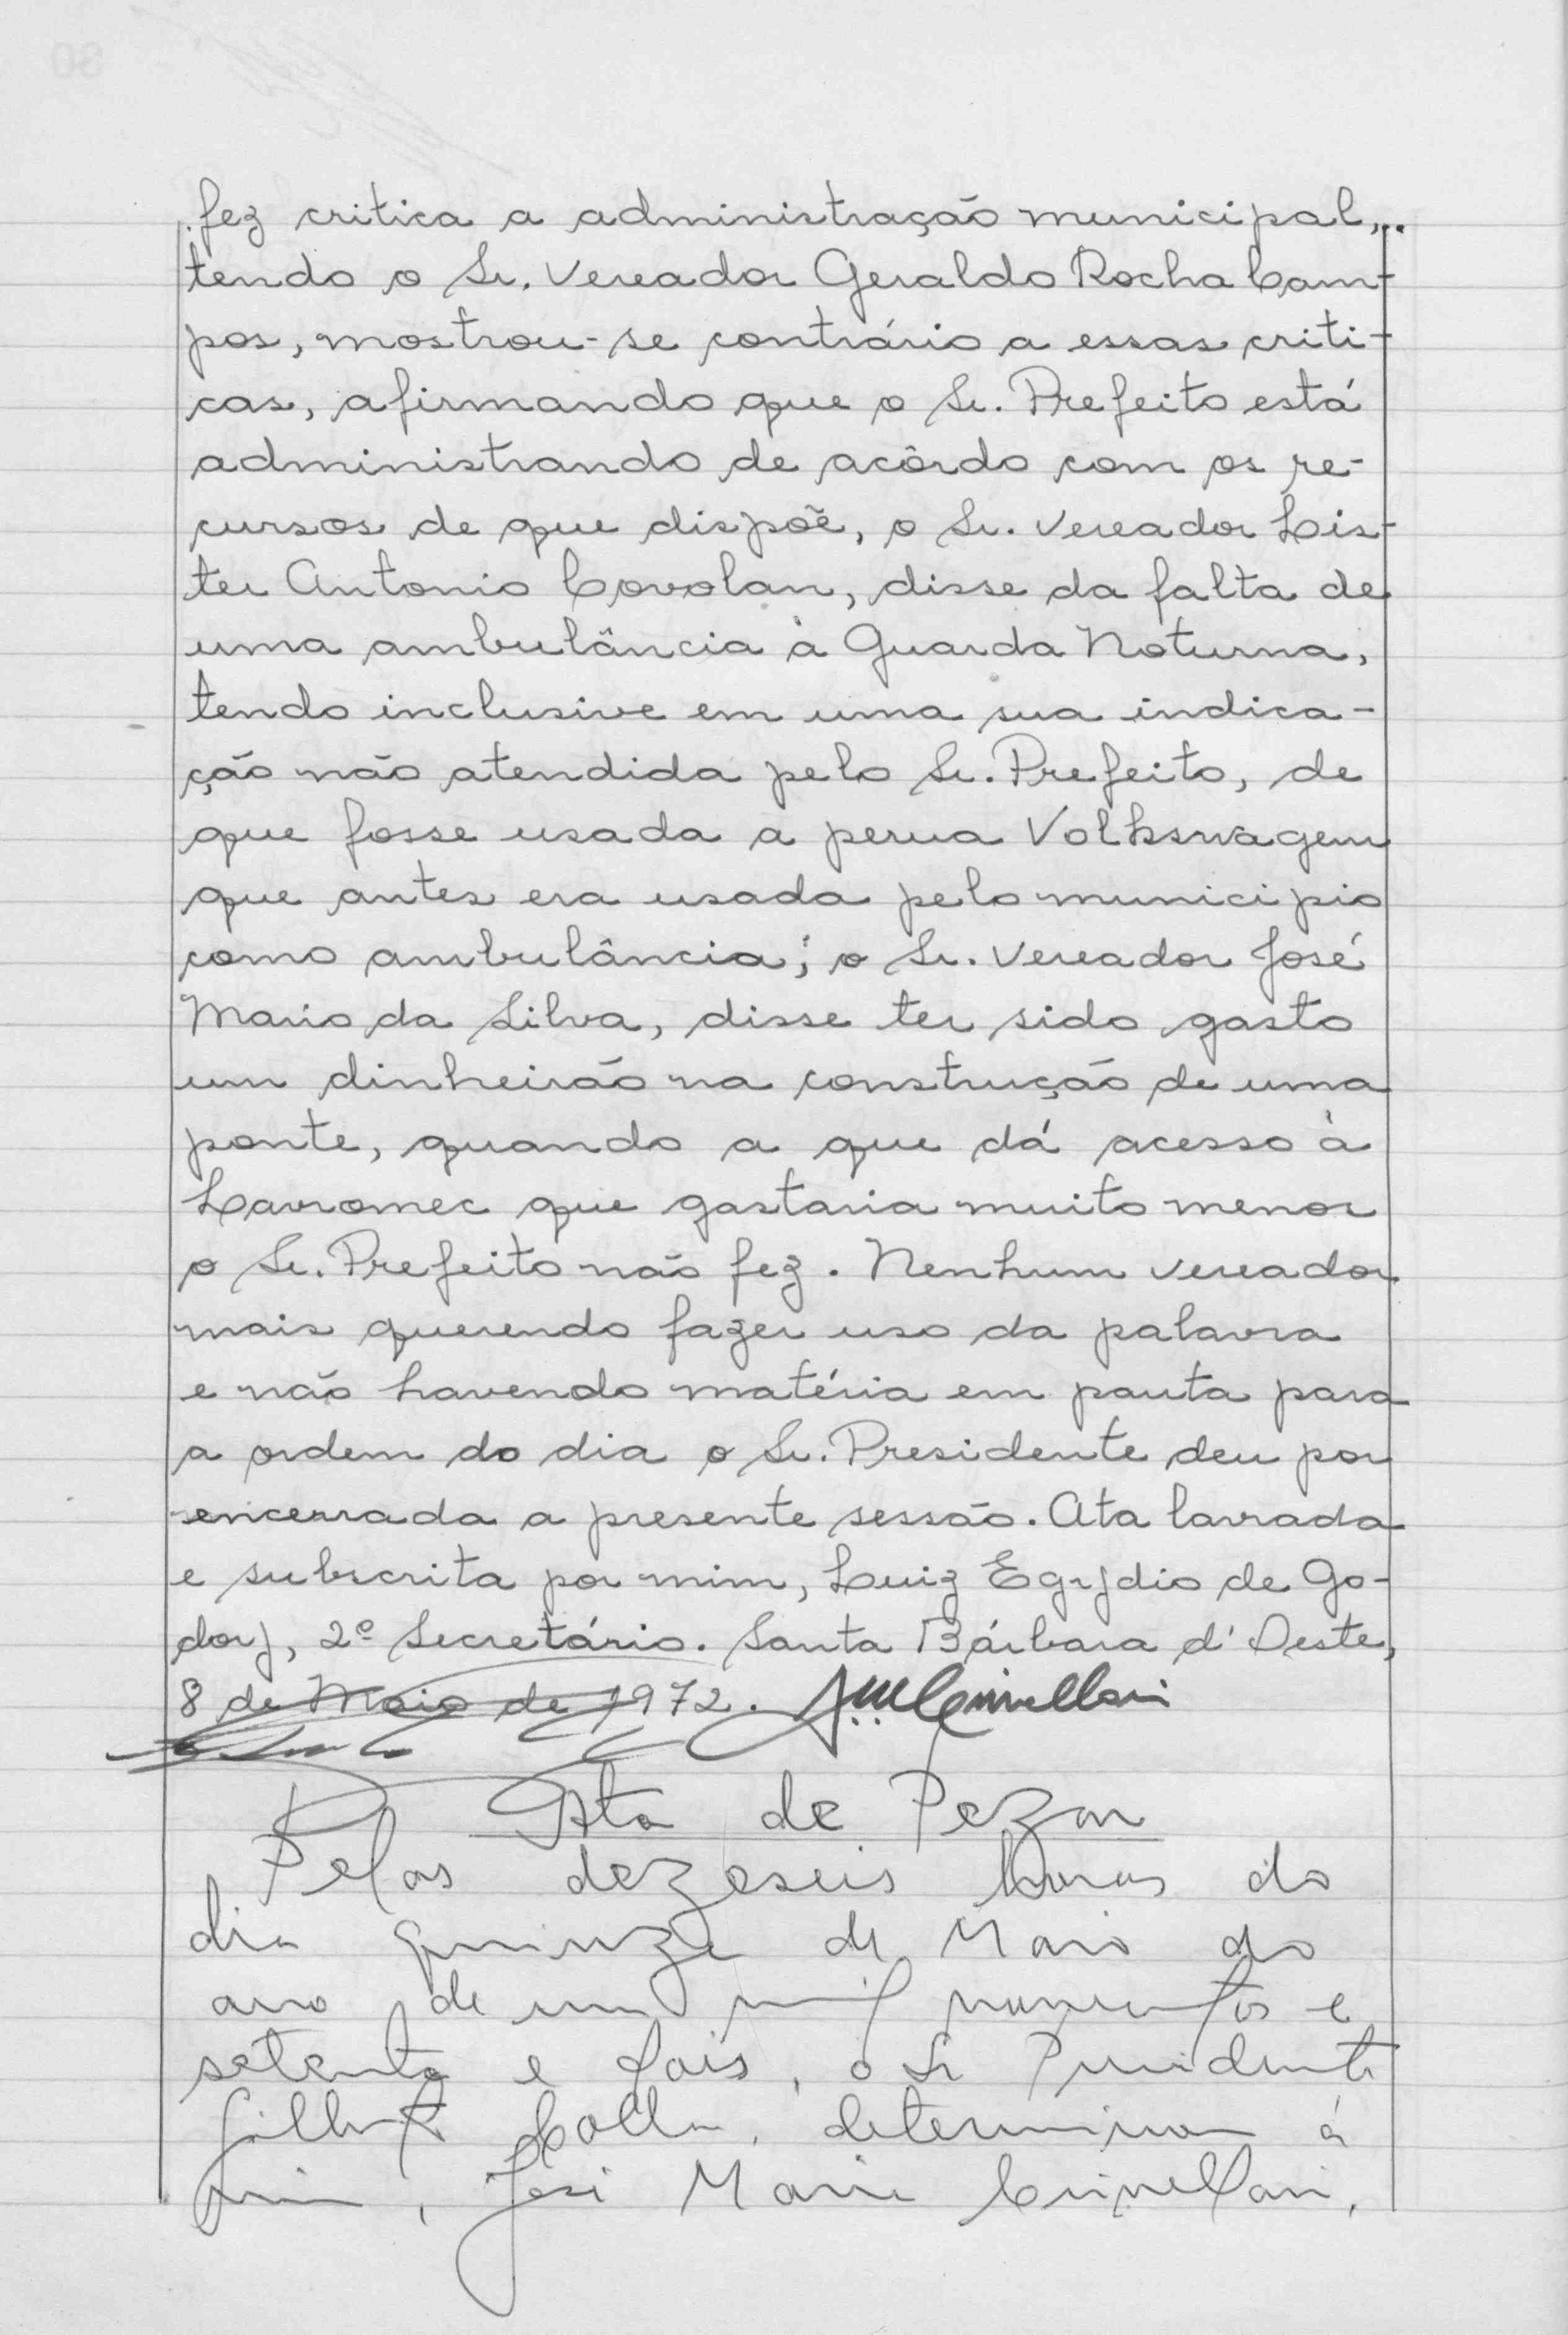 fez critica a administração municipal,..
tendo o Sr. Vereador Geraldo Rocha Cam-
pos, mostrou-se contrário a essas criti-
cas, afirmando que o Sr. Prefeito está
administrando de acôrdo com os re-
cursos de que dispõe, o Sr. Vereador Lis-
ter Antonio Covolan, disse da falta de
uma ambulância à Guarda Noturna,
tendo inclusive em uma sua indica-
ção não atendida pelo Sr. Prefeito, de
que fosse usada a perua Volkswagem
que antes era usada pelo municipio
como ambulância; o Sr. Vereador José
Maria da Silva, disse ter sido gasto
um dinheirão na construção de uma
ponte, quando a que dá acesso à
Lavromec que gastaria muito menos
o Sr. Prefeito não fez. Nenhum vereador
mais querendo fazer uso da palavra
e não havendo matéria em pauta para
a ordem do dia o Sr. Presidente deu por
encerrada a presente sessão. Ata lavrada
e subscrita por mim, Luiz Egydio de Go-
doy, 2º Secretário. Santa Bárbara d'Oeste,
8 de Maio de 1972.
Ata de Pezar
Pelas dezeseis horas do
dia quinze de Maio do
ano de um mil novecentos e
setenta e dois, o Sr Presidente
determinou á
mim, José Maria